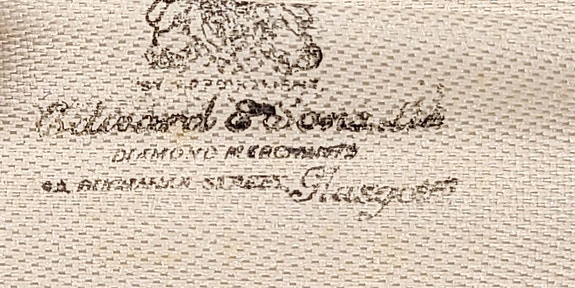 BY APPOINTMENT
Edward & Sons Ltd
DIAMOND MERCHANTS
92, BUCHANAN STREET, Glasgow